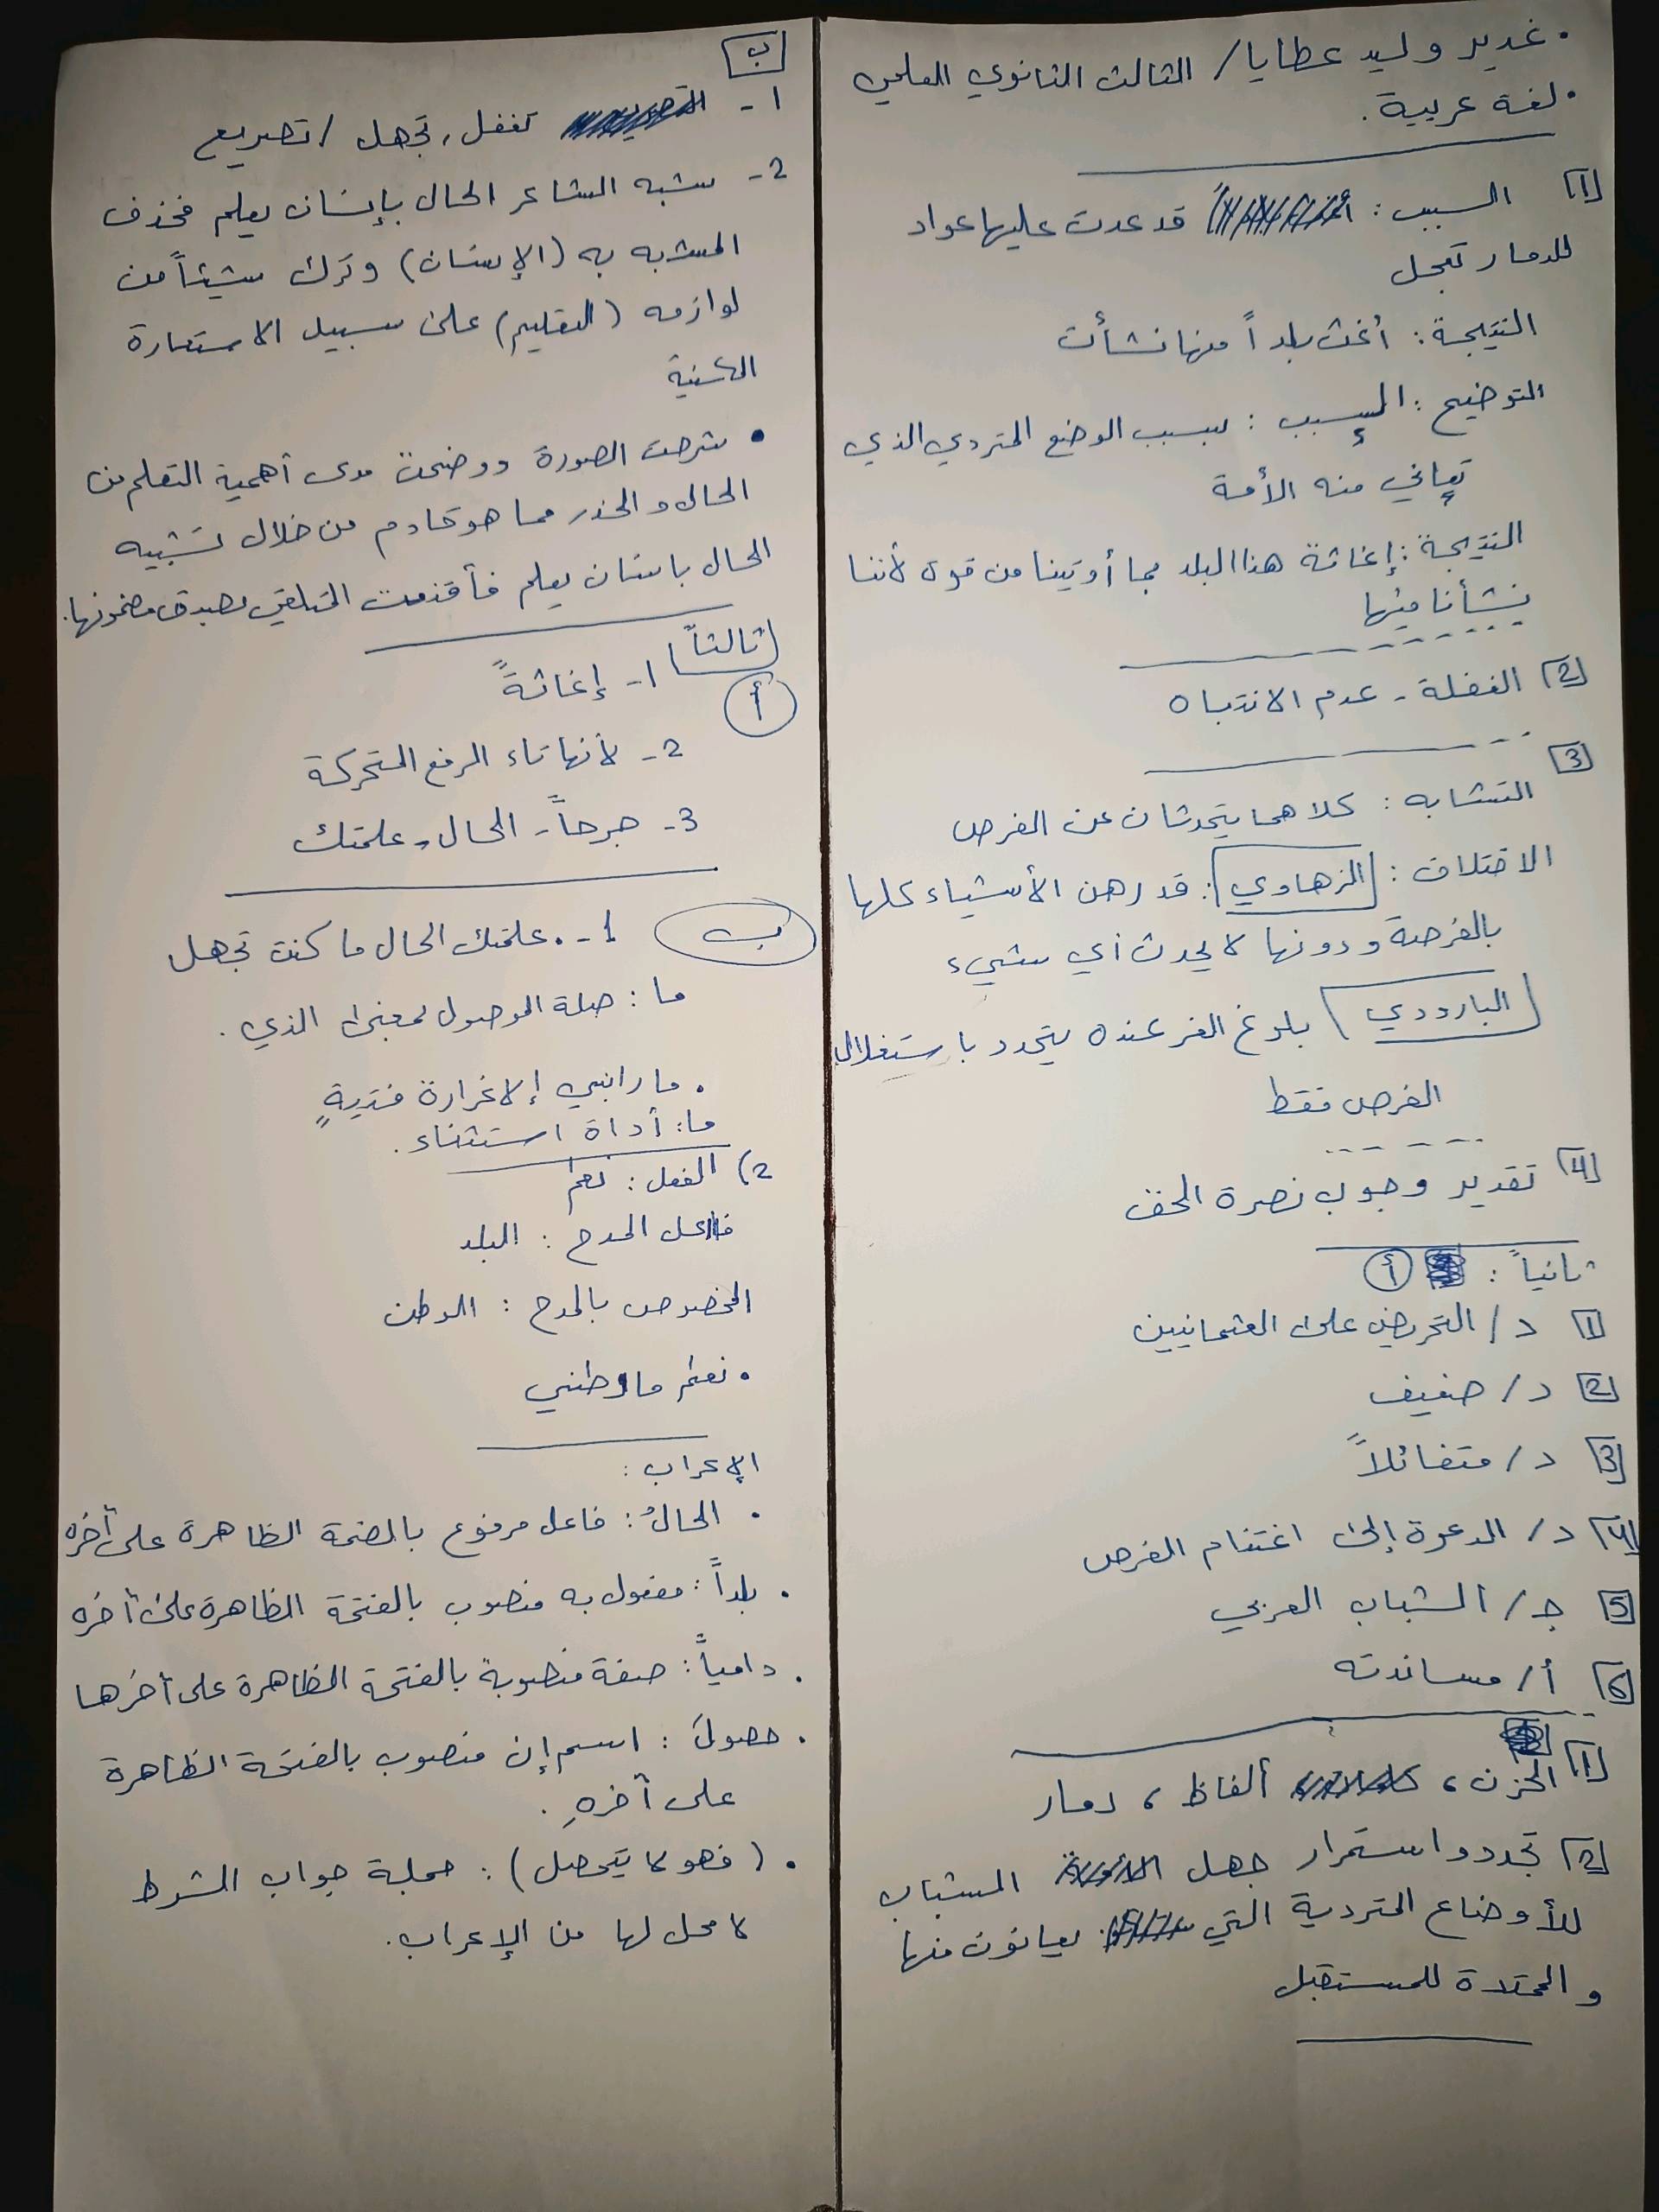 • غدير وليد عطايا / الثالث الثانوي العلمي
• لغة عربية.
[1] السبب: قد عدت عليها عواد
للدمار تعجل
النتيجة: أغث بلداً منها نشأت
التوضيح: السبب: بسبب الوضع المتردي الذي
تعاني منه الأمة
النتيجة: إغاثة هذا البلد بما أوتينا من قوة لأننا
نشأنا منها
[2] الغفلة - عدم الانتباه
[3]
التشابه: كلاهما يتحدثان عن الفرص
الاختلاف: الزهاوي: قد رهن الأشياء كلها
بالفرصة ودونها لا يحدث أي شيء
البارودي بلوغ الفر عنده يتحدد باستغلال
الفرص فقط
[4] تقدير وجوب نصرة الحق
ثانياً: أ
[1] د/ التحريض على العثمانيين
[2] د/ ضعيف
[3] د/ متفائلاً
[4] د/ الدعوة إلى اغتنام الفرص
[5] ج/ الشباب العربي
[6] أ/ مساندته
[1] الحزن، ألفاظ، دمار
[2] تجدد واستمرار جهل الشباب
للأوضاع المتردية التي يعانون منها
والممتدة للمستقبل
ب
1- تغفل، تجهل / تصريع
2- شبه الشاعر الحال بإنسان يعلم فحذف
المشبه به (الإنسان) وترك شيئاً من
لوازمه (التعليم) على سبيل الاستعارة
المكنية
• شرحت الصورة ووضحت مدى أهمية التعلم من
الحال والحذر مما هو قادم من خلال تشبيه
الحال بانسان يعلم فأقنعت المتلقي بصدق مضمونها.
ثالثاً 1- إغاثةً
أ
2- لأنها تاء الرفع المتحركة
3- جرحاً - الحال - علمتك
ب 1- • علمتك الحال ما كنت تجهل
ما: صلة الموصول بمعنى الذي.
• ما رابني إلا غرارة فتيةٍ
ما: أداة استثناء.
2) الفعل: نعم
فاعل المدح: البلد
المخصوص بالمدح: الوطن
• نعم ما وطني
الإعراب:
• الحالُ: فاعل مرفوع بالضمة الظاهرة على آخره
• بلداً: مفعول به منصوب بالفتحة الظاهرة على آخره
• دامياً: صفة منصوبة بالفتحة الظاهرة على آخرها
• حصولَ: اسم إن منصوب بالفتحة الظاهرة
على آخرهِ.
• (فهو لا يتحصل): جملة جواب الشرط
لا محل لها من الإعراب.